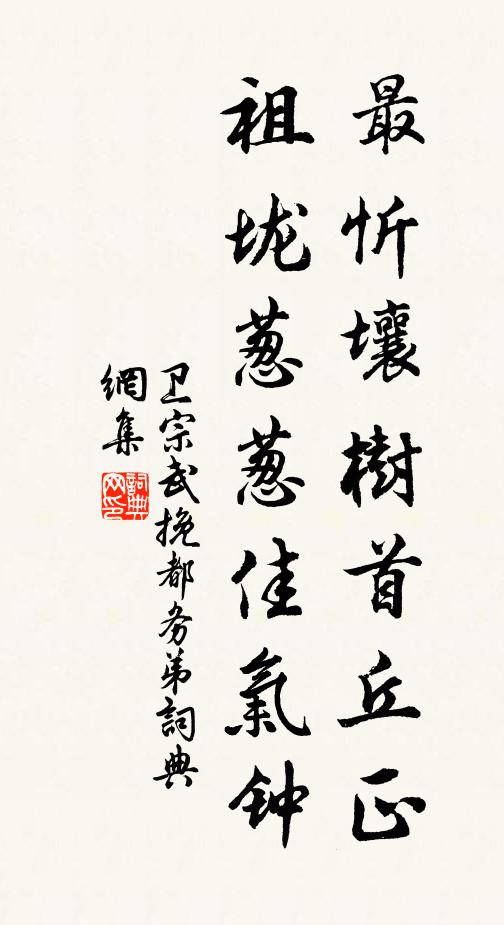 最忻壤樹首丘正
祖垅葱葱佳氣钟
卫宗武挽都务弟詞典
網集
詞典
网印